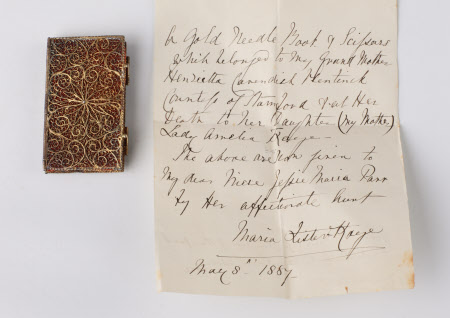 A Gold Needle Book & Scissors
which belonged to my Grand Mother
Henrietta Cavendish Bentinck
Countess of Stamford & at Her
Death to Her Daughter (my Mother)
Lady Amelia Kaye -
The above are now given to
my dear Niece Jessie Maria Parr
by Her affectionate Aunt
Maria Lister Kaye
May 8th 1887